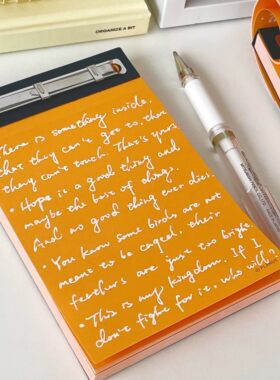 ORGANIZE A BIT
There is something inside,
that they can't get to, that
they can't touch. That's yours
• Hope is a good thing and
maybe the best of things.
And no good thing ever dies.
• You know some birds are not
meant to be caged, their
feathers are just too bright.
• This is my kingdom. If I
don't fight for it, who will?